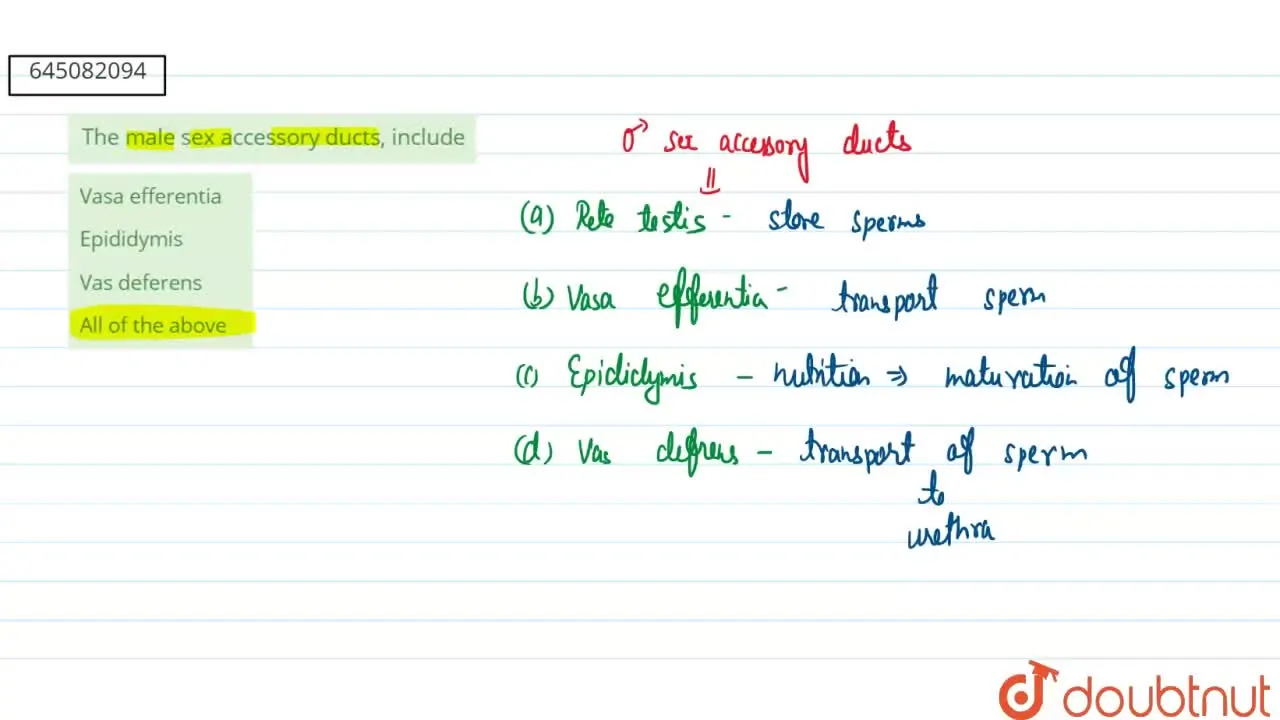 645082094
The male sex accessory ducts, include
Vasa efferentia
Epididymis
Vas deferens
All of the above
♂ sex accessory ducts
(a) Rete testis - store sperms
(b) Vasa efferentia - transport sperm
(c) Epididymis - nutrition ⇒ maturation of sperm
(d) Vas defrens - transport of sperm
to
urethra
doubtnut